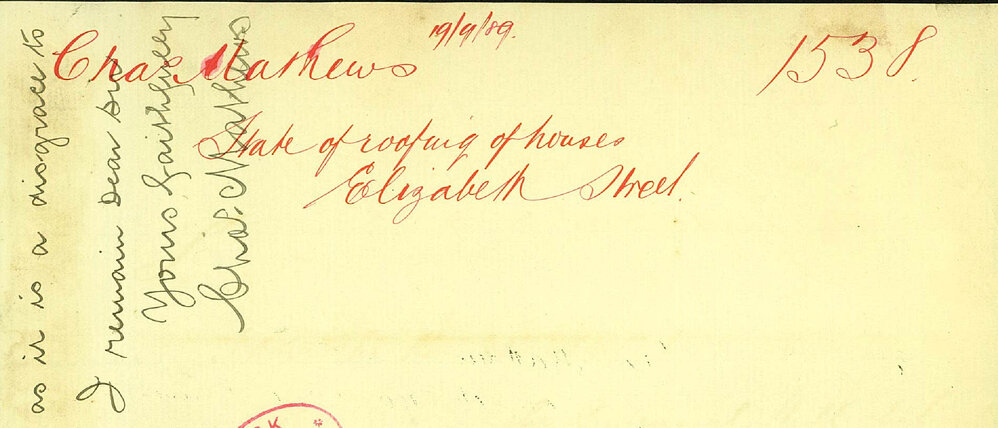 19/9/89.
Chas Mathews 1538.
State of roofing of houses
Elizabeth Street.
as it is a disgrace to
I remain Dear Sir
Yours Faithfully
Chas. Mathews
RK *